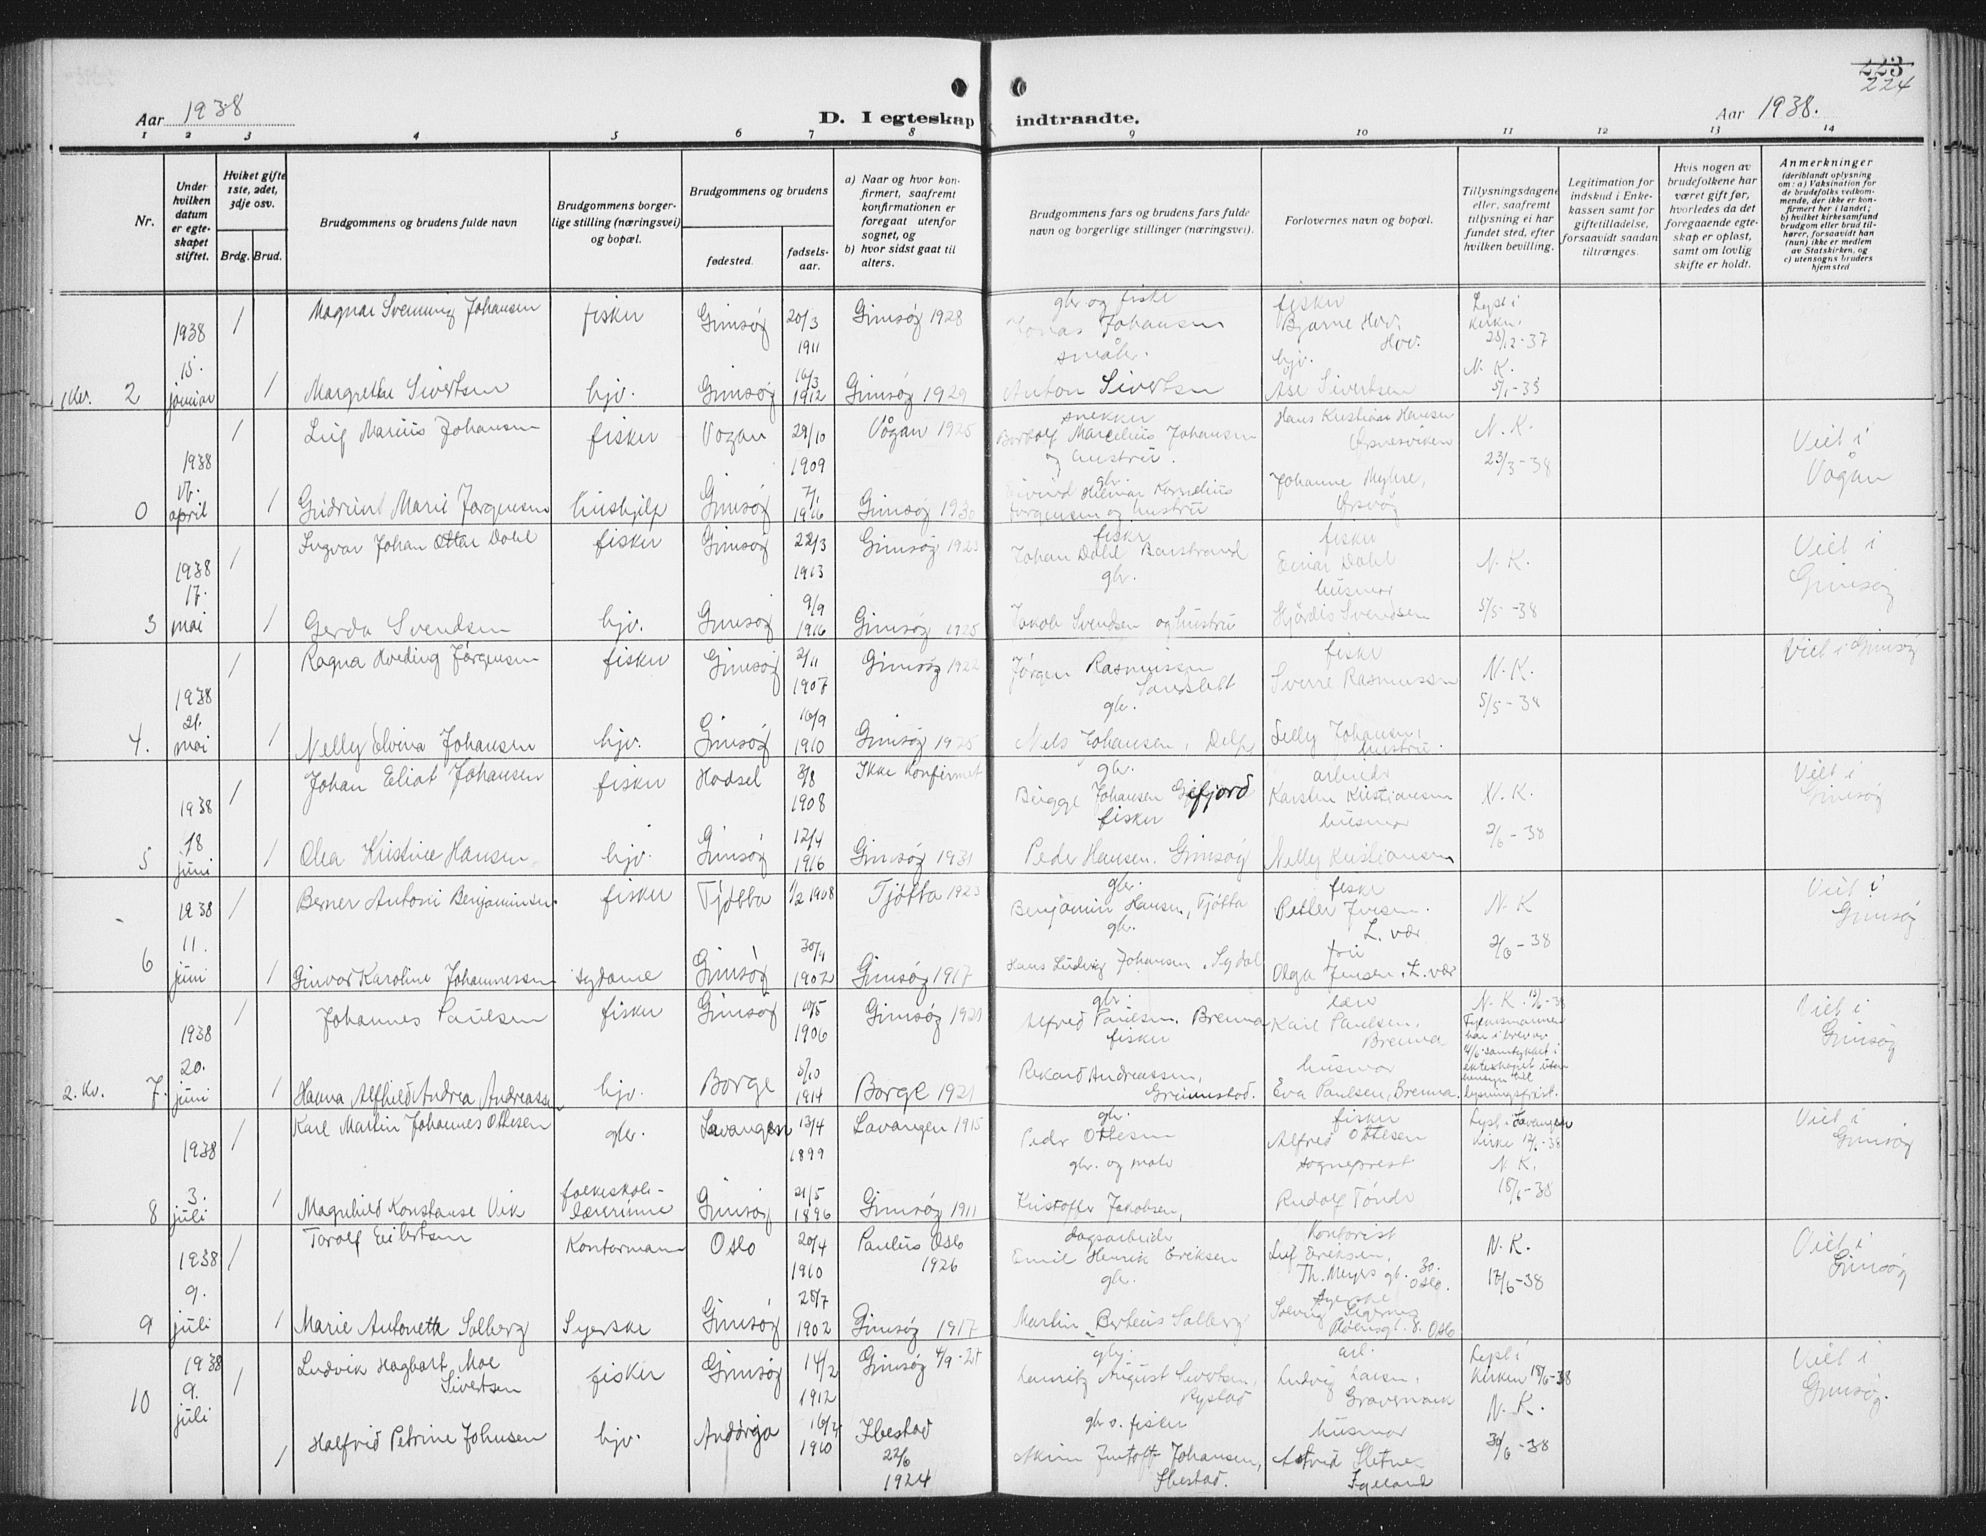 223
224
Aar 1938
D. I egteskap indtraadte.
Aar 1938.
1 2 3 4 5 6 7 8 9 10 11 12 13 14
Nr.
Under hvilken datum er egteskapet stiftet.
Hvilket gifte 1ste, 2det, 3dje osv.
Brdg. Brud.
Brudgommens og brudens fulde navn
Brudgommens borgerlige stilling (næringsvei) og bopæl.
Brudgommens og brudens
fødested.
fødselsaar.
a) Naar og hvor konfirmert, saafremt konfirmationen er foregaat utenfor sognet, og
b) hvor sidst gaat til alters.
Brudgommens fars og brudens fars fulde navn og borgerlige stillinger (næringsvei).
Forlovernes navn og bopæl.
Tillysningsdagene eller, saafremt tillysning ei har fundet sted, efter hvilken bevilling.
Legitimation for indskud i Enkekassen samt for giftetilladelse, forsaavidt saadan tiltrænges.
Hvis nogen av brudefolkene har været gift før, hvorledes da det foregaaende egteskap er opløst, samt om lovlig skifte er holdt.
Anmerkninger
(deriblandt oplysning om: a) Vaksination for de brudefolks vedkommende, der ikke er konfirmert her i landet; b) hvilket kirkesamfund brudgom eller brud tilhører, forsaavidt han (hun) ikke er medlem av Statskirken, og c) utensogns bruders hjemsted
1938 1 Magnar Svenning Johansen fisker Gimsøy 20/3 1911 Gimsøy 1928
gbr og fisker
Jonas Johansen
fisker
Bjarne Hov, Hov.
Lyst i kirken 25/12-37
15. januar
1 Kv. 2 1 Margrethe Sivertsen hjv. Gimsøy 16/3 1912 Gimsøy 1929
småbr.
Anton Sivertsen
hjv.
Åse Sivertsen
N. K. 5/1-38
1938 1 Leif Marius Johansen fisker Vågan 29/10 1909 Vågan 1925
snekker
Marcelius Johansen og hustru.
Hans Kristian Hansen
Ørsnesviken
N. K. 23/3-38
Viet i Vågan
april
1 Gudrun Marie Jørgensen hushjelp Gimsøy 7/1 1916 Gimsøy 1930
gbr.
Eivind Hilmar Kornelius Jørgensen og hustru
Johanne Myhre,
1938 1 Ingvar Johan Ottar Dahl fisker Gimsøy 22/3 1913 Gimsøy 1923
fisker
Johan Dahl Barstrand
fisker
Einar Dahl
N. K. 5/5-38
Viet i Gimsøy
17. mai
3 1 Gerda Svendsen hjv. Gimsøy 9/9 1916 Gimsøy 1925
gbr.
Jakob Svendsen og hustru
husmor
Hjördis Svendsen
1938 1 Ragna Hveding Jørgensen fisker Gimsøy 2/11 1907 Gimsøy 1922
Jørgen Rasmussen
Sandslett
fisker
Sverre Rasmussen
N. K. 5/5-38
Viet i Gimsøy
21. mai
4. 1 Nelly Elvina Johansen hjv. Gimsøy 16/9 1910 Gimsøy 1925
gbr.
Nels Johansen, Delp
Selly Johansen, hustru.
1938 1 Johan Eliot Johansen fisker Hadsel 3/8 1908 Ikke konfirmert
gbr.
Birger Johansen Gjefjord
arbeider
Karsten Kristiansen
N. K. 2/6-38
Viet i Gimsøy
18 juni
5 1 Olea Kristine Hansen hjv. Gimsøy 12/4 1916 Gimsøy 1931
fisker
Peder Hansen. Gimsøy
husmor
Nelly Kristiansen
1938 1 Berner Antoni Benjaminsen fisker Tjøtta 1/2 1908 Tjøtta 1923
gbr.
Benjamin Hansen, Tjøtta
fisker
Petter Jensen. L. vær
N. K 2/6-38
Viet i Gimsøy
11. juni
6 1 Ginvor Karoline Johannessen sydame Gimsøy 30/9 1902 Gimsøy 1917
gbr.
Hans Ludvig Johansen, Sydal
fru
Olga Jensen. L. vær
1938 1 Johannes Paulsen fisker Gimsøy 10/5 1906 Gimsøy 1921
gbr.
Alfred Paulsen. Brenna
Karl Paulsen, Brenna
N. K. 15/6-38
Fylkesmannen har i brev av 14/6 samtykket i ekteskapet uten hensyn til lysningsfrist.
Viet i Gimsøy
20. juni
2. Kv. 7. 1 Hanna Alfhild Andrea Andreassen hjv. Borge 5/10 1914 Borge 1921
fisker
Rikard Andreassen, Grimstad.
husmor
Eva Paulsen, Brenna.
1938 1 Karl Martin Johannes Ottesen gbr. Lavangen 13/4 1899 Lavangen 1915
gbr.
Peder Ottesen
fisker
Alfred Ottesen
Lyst i Lavangen kirke 12/6-38
N. K. 18/6-38
Viet i Gimsøy
3. juli
8 1 Magnhild Konstanse Vik folkeskolelærerinne Gimsøy 21/5 1896 Gimsøy 1911
gbr. og maler
Kristoffer Jakobsen,
sogneprest
Rudolf Tønder
1938 1 Toralf Eilertsen Kontormann Oslo 20/4 1910 Paulus Oslo 1926
dagsarbeider
Emil Henrik Eriksen
Kontorist
Leif Eriksen, Th. Meyers gt. 30. Oslo.
N. K. 17/6-38
Viet i Gimsøy
9. juli
9 1 Marie Antonette Solberg Syerske Gimsøy 25/7 1902 Gimsøy 1917
gbr.
Martin Berteus Solberg
Syerske
Solveig
8. Oslo
1938 1 Ludvik Hagbart Moe Sivertsen fisker Gimsøy 14/2 1912 Gimsøy 4/9-27
gbr.
Lauritz August Sivertsen, Rystad
arb.
Ludvig Larsen, Gravermark
Lyst i Kirken 18/6-38
N. K. 30/6-38
Viet i Gimsøy.
9. juli
10 1 Halfrid Petrine Johnsen hjv. Andørja 16/4 1910 Ibestad 22/6 1924
gbr o. fisker
Johansen, Ibestad.
husmor
Astrid Sletner